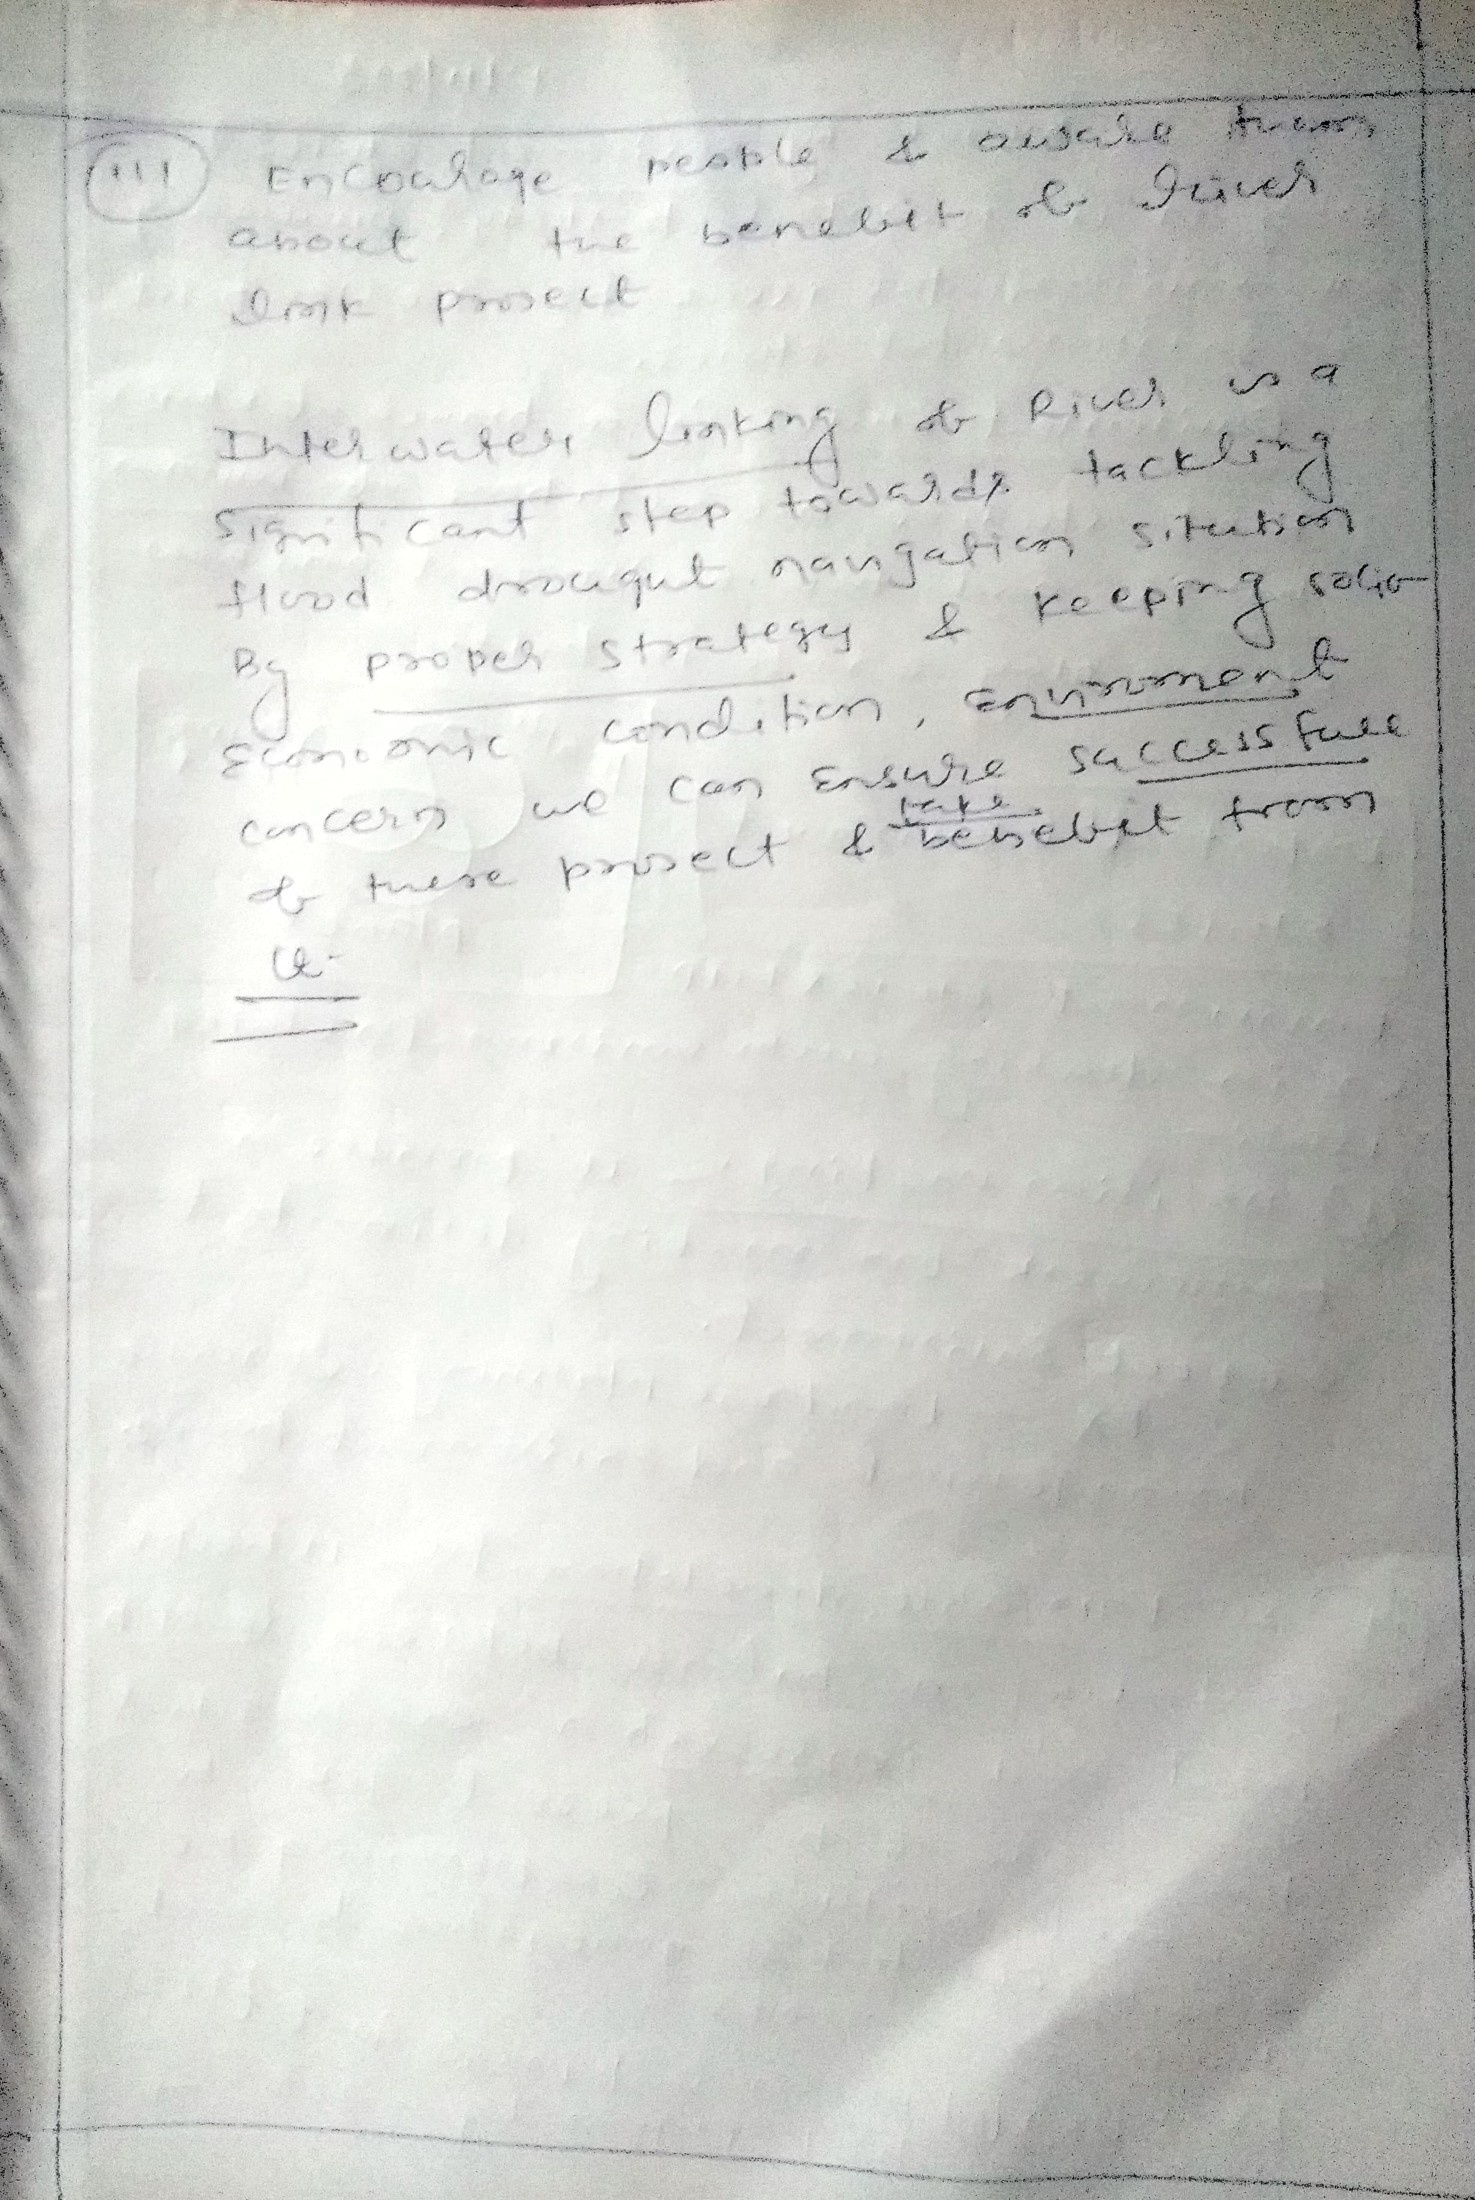 (iii) Encourage people & aware them
about the benefit of River
link project
Interwater linking of River is a
significant step towards tackling
flood drought navigation situation
By proper strategy & keeping socio
Economic condition, environment
concern we can ensure successfull
of these project & take benefit from
it.